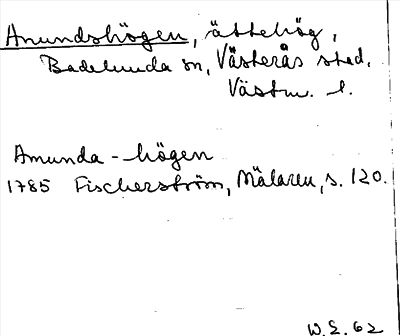 Anundshögen, ättehög,
Badelunda sn, Västerås stad.
Västm. l.
Amunda-högen
1785 Fischerström, Mälaren, s. 120.
W.E. 62